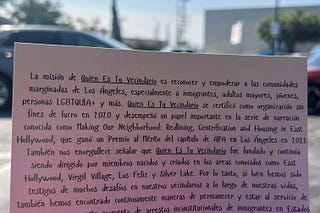 La misión de Quien Es Tu Vecindario es reconocer y empoderar a las comunidades
marginadas de Los Ángeles, especialmente a inmigrantes, adultos mayores, jóvenes,
personas LGBTQUIA+ y más. Quien Es Tu Vecindario se certificó como organización sin
fines de lucro en 2020 y desempeñó un papel importante en la serie de narración
conocida como Making Our Neighborhood: Redlining, Gentrification and Housing in East
Hollywood, que ganó un Premio al Mérito del capítulo de APA en Los Ángeles en 2021.
También nos enorgullece señalar que Quien Es Tu Vecindario fue fundado y continúa
siendo dirigido por miembros nacidos y criados en las áreas conocidas como East
Hollywood, Virgil Village, Los Feliz y Silver Lake. Por lo tanto, si bien hemos sido
testigos de muchos desafíos en nuestros vecindarios a lo largo de nuestras vidas,
también hemos encontrado continuamente maneras de permanecer y estar al servicio de
de arrestos inconstitucionales de inmigrantes en Estados